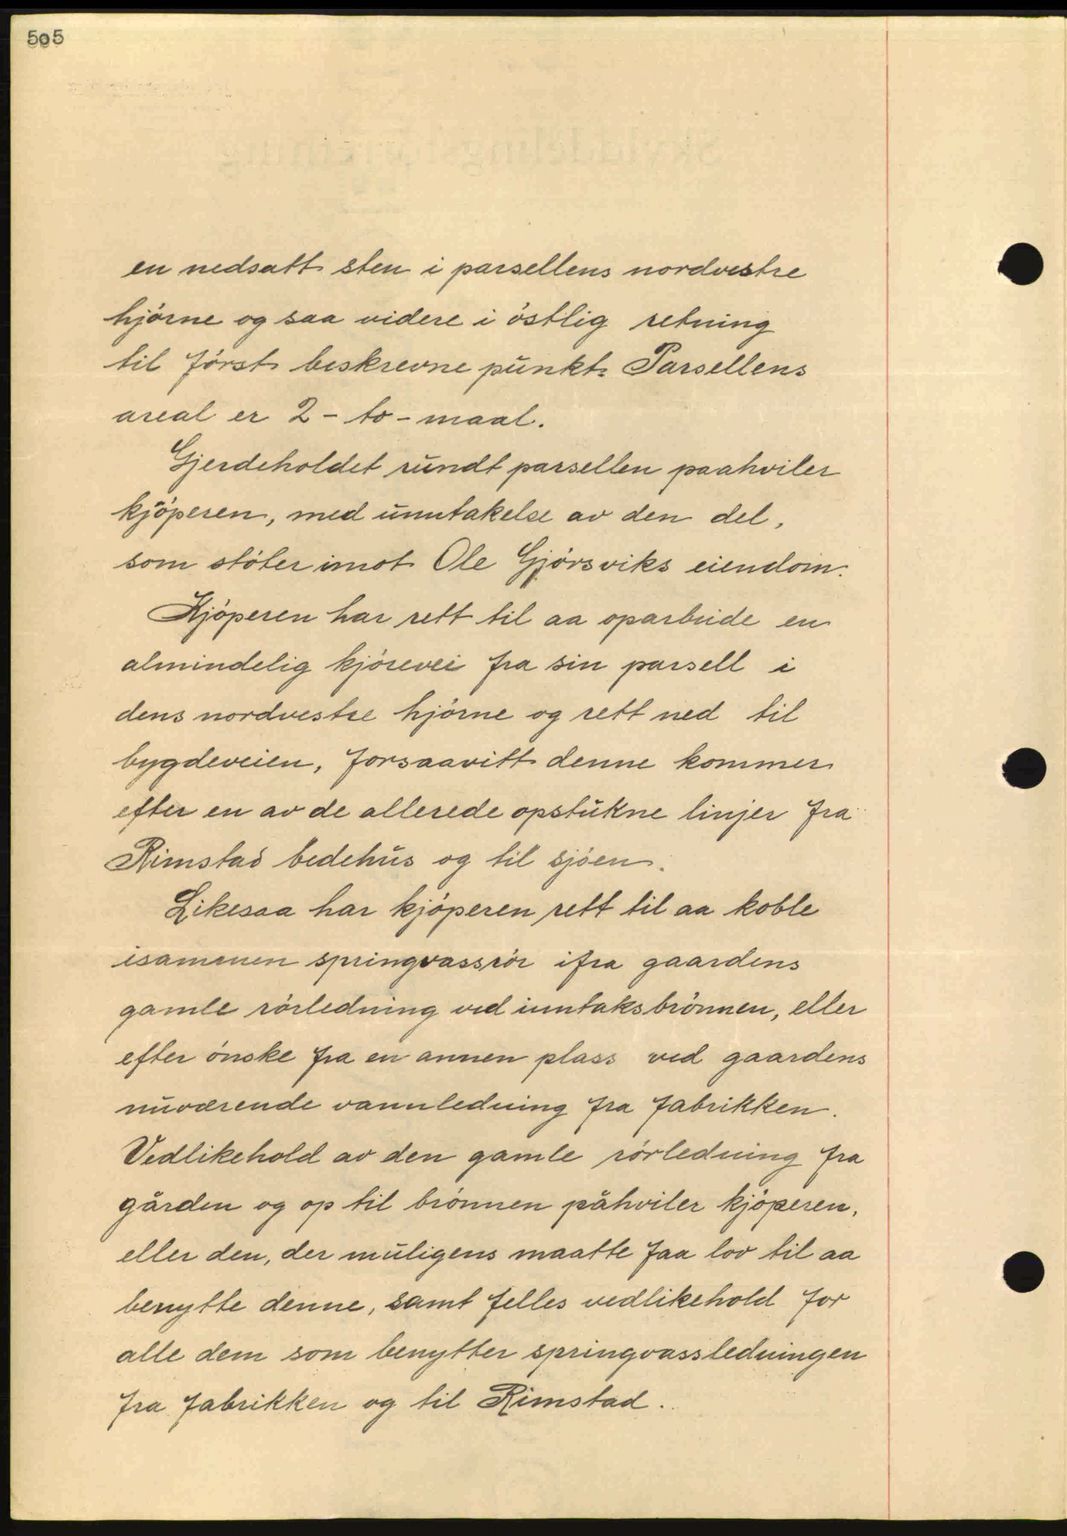 505
en nedsatt sten i parsellens nordvestre
hjörne og saa videre i östlig retning
til först beskrevne punkt. Parsellens
areal er 2 - to - maal.
Gjerdeholdet rundt parsellen paahviler
kjöperen, med unntakelse av den del,
som stöter imot Ole Gjörsviks eiendom.
Kjöperen har rett til aa oparbeide en
almindelig kjörevei fra sin parsell i
dens nordvestre hjörne og rett ned til
bygdeveien, forsaavitt denne kommer
efter en av de allerede opstukne linjer fra
Rimstad bedehus og til sjöen.
Likesaa har kjöperen rett til aa koble
isammen springvassrör ifra gaardens
gamle rörledning ved inntaksbrönnen, eller
efter önske fra en annen plass ved gaardens
nuværende vannledning fra fabrikken.
Vedlikehold av den gamle rörledning fra
gården og op til brönnen påhviler kjöperen,
eller den, der muligens maatte faa lov til aa
benytte denne, samt felles vedlikehold for
alle dem som benytter springvassledningen
fra fabrikken og til Rimstad.